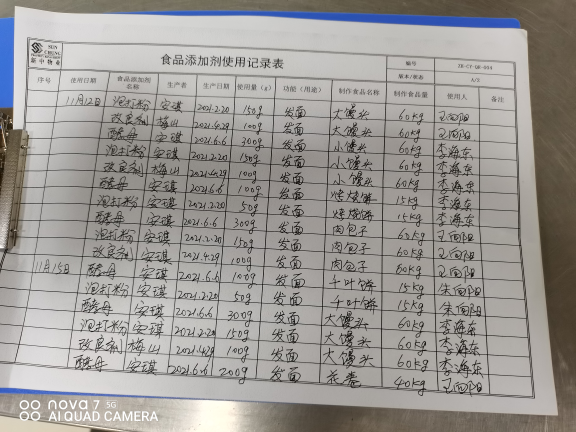 SUN
CHUNG
新中物业
食品添加剂使用记录表
编号 ZX-CY-QR-094
版本/状态 A/2
序号 使用日期 食品添加剂名称 生产者 生产日期 使用量（g） 功能（用途） 制作食品名称 制作食品量 使用人 备注
11月12日 泡打粉 安琪 2021.2.20 150g 发面 大馒头 60kg 王向阳
改良剂 梅山 2021.4.29 100g 发面 大馒头 60kg 王向阳
酵母 安琪 2021.6.6 300g 发面 小馒头 60kg 李海东
泡打粉 安琪 2021.2.20 150g 发面 小馒头 60kg 李海东
改良剂 梅山 2021.4.29 100g 发面 小馒头 60kg 李海东
酵母 安琪 2021.6.6 100g 发面 烤烧饼 15kg 李海东
泡打粉 安琪 2021.2.20 50g 发面 烤烧饼 15kg 李海东
酵母 安琪 2021.6.6 300g 发面 肉包子 60kg 王向阳
泡打粉 安琪 2021.2.20 150g 发面 肉包子 60kg 王向阳
改良剂 安琪 2021.4.29 100g 发面 肉包子 60kg 王向阳
11月15日 酵母 安琪 2021.6.6 100g 发面 千叶饼 15kg 朱向阳
泡打粉 安琪 2021.2.20 50g 发面 千叶饼 15kg 朱向阳
酵母 安琪 2021.6.6 300g 发面 大馒头 60kg 李海东
泡打粉 安琪 2021.2.20 150g 发面 大馒头 60kg 李海东
改良剂 梅山 2021.4.29 100g 发面 大馒头 60kg 李海东
酵母 安琪 2021.6.6 200g 发面 花卷 40kg 王向阳
nova 7 5G
AI QUAD CAMERA